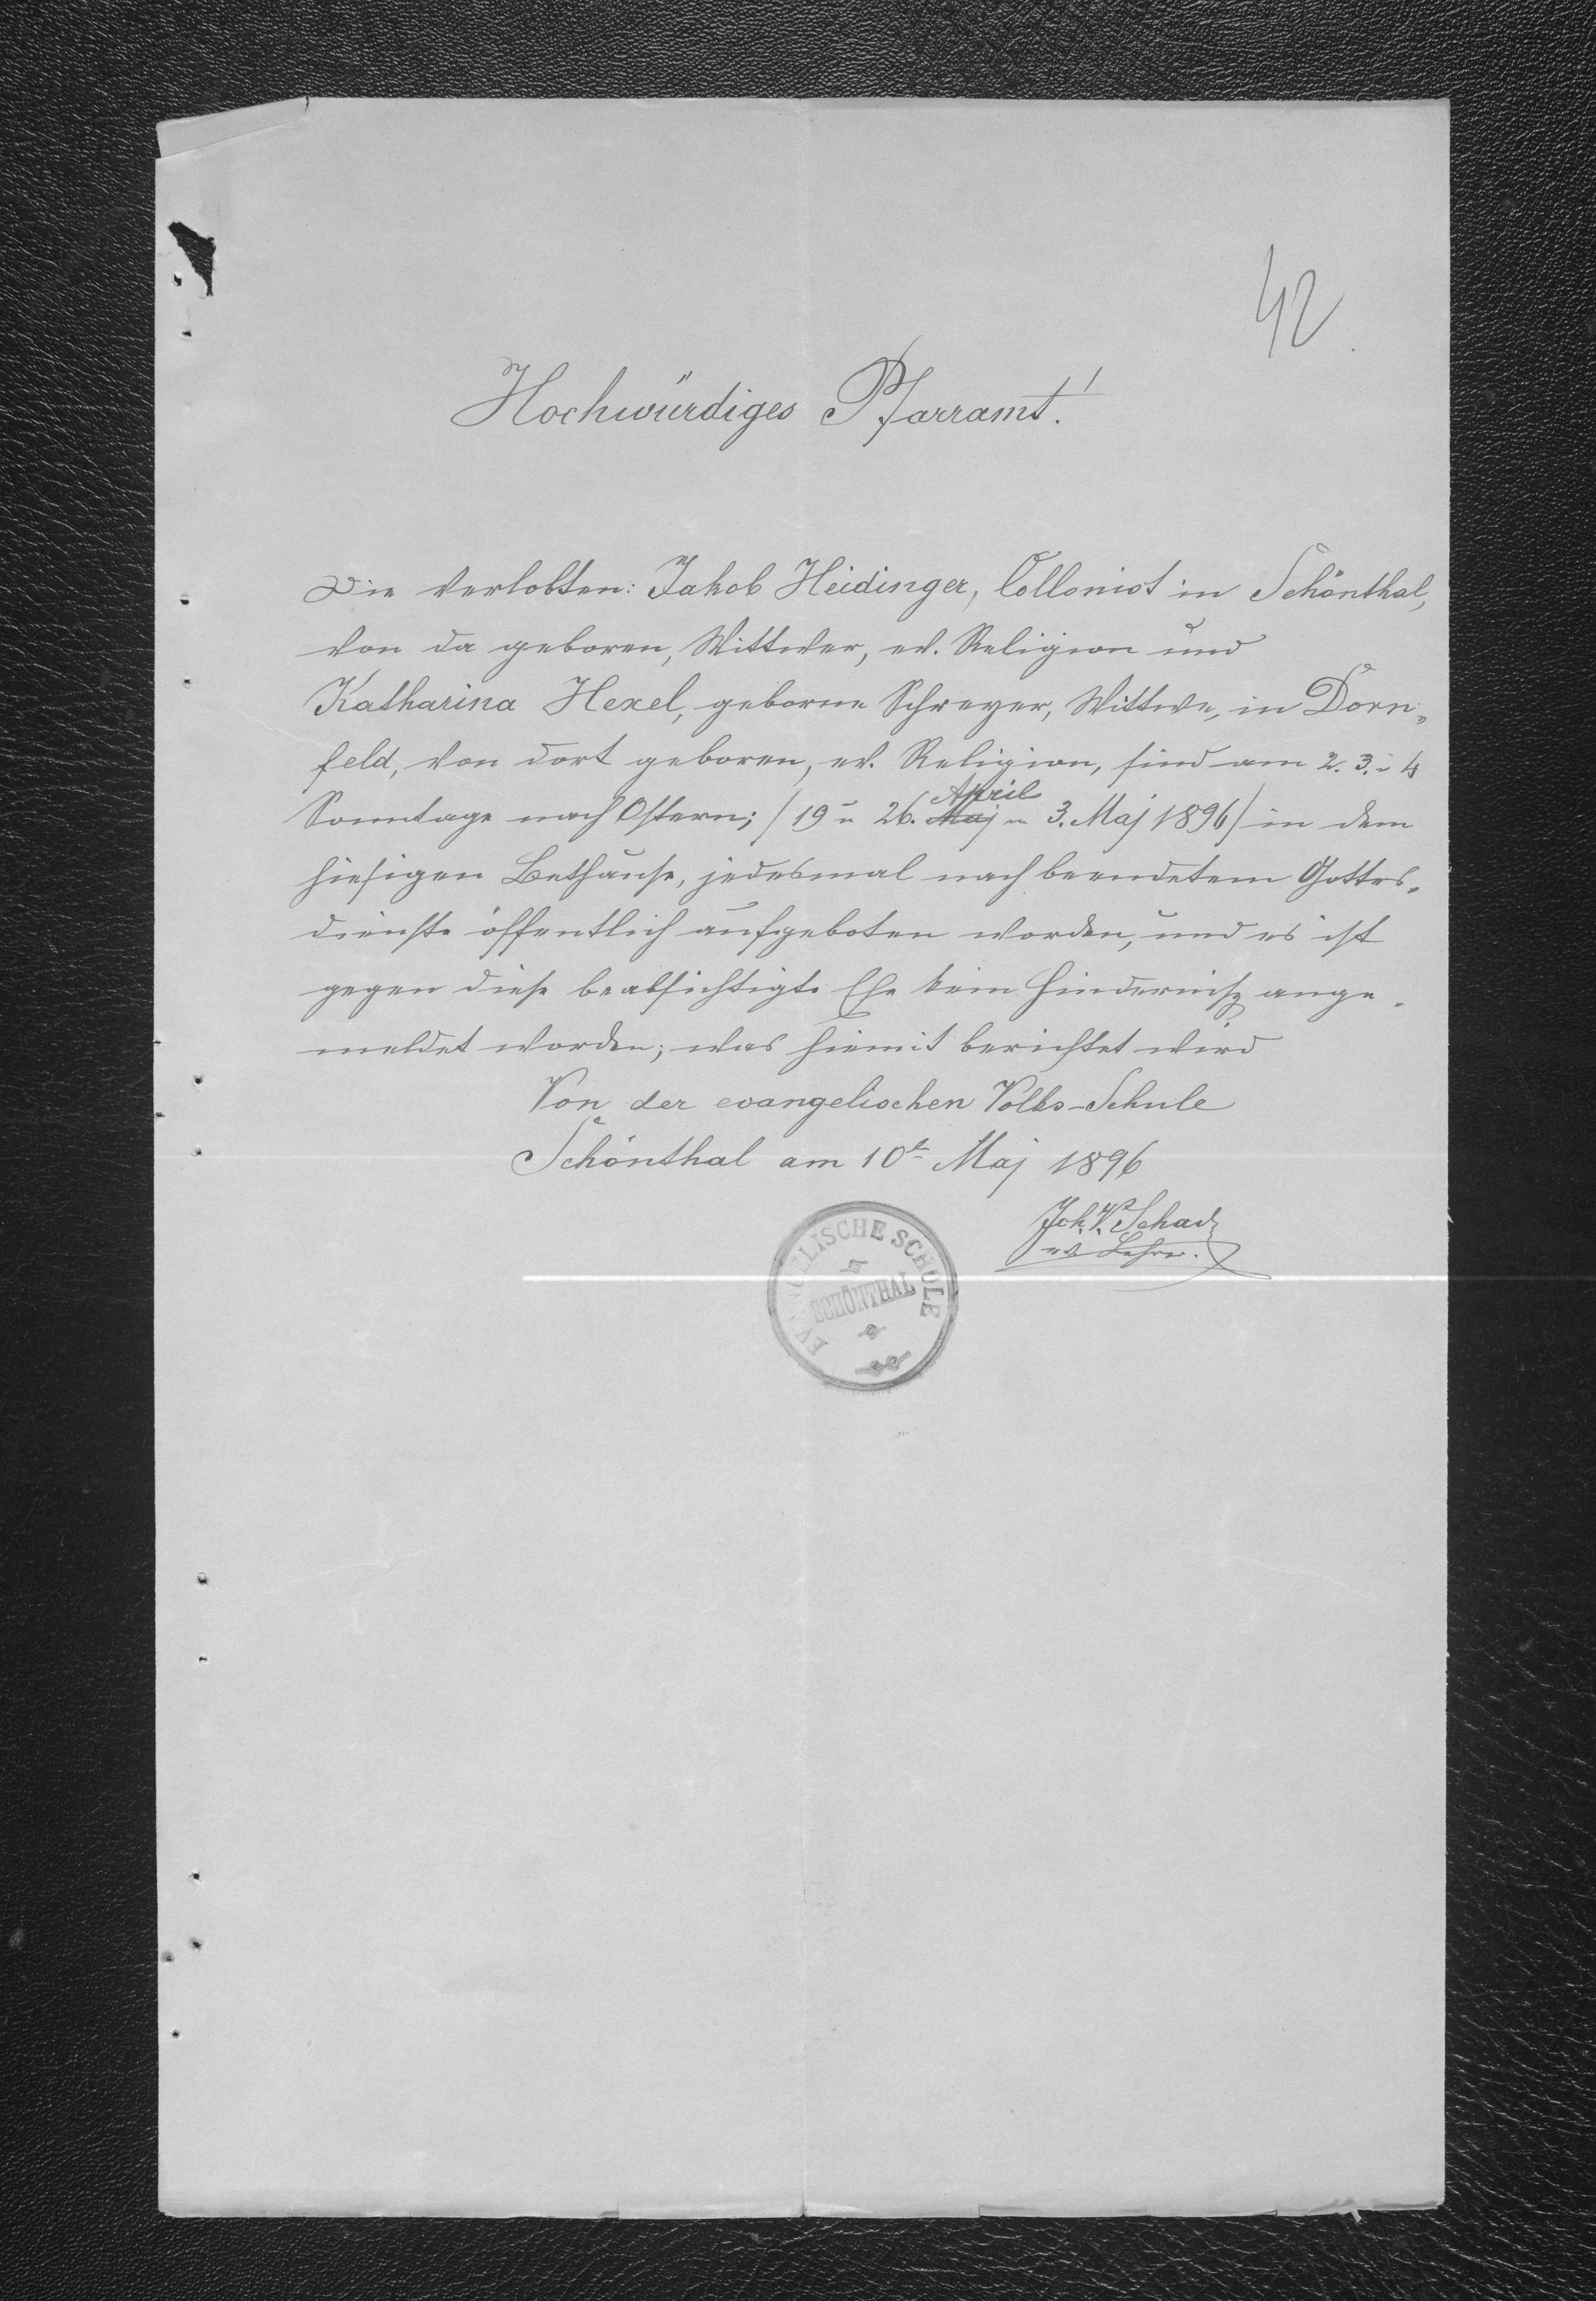 42
Hochwürdiges Pfarramt!
Die Verlobten: Jakob Heidinger, Collonist in Schönthal,
von da geboren, Wittwer, ev. Religion und
Katharina Hexel, geborne Schreyer, Wittwe, in Dorn„
feld, von dort geboren, ev. Religion, sind am 2. 3. u 4
April
Sonntage nach Ostern; /19 u 26. Maj u 3. Maj 1896/ in dem
hiesigen Bethause, jedesmal nach beendetem Gottes„
dienste öffentlich aufgeboten worden, und es ist
gegen diese beabsichtigte Ehe kein Hinderniß ange„
meldet worden; was hiemit berichtet wird
Von der evangelischen Volks-Schule
Schönthal am 10t Maj 1896
Joh. Schad
ev Lehrer.
EVANGELISCHE SCHULE
SCHÖNTHAL